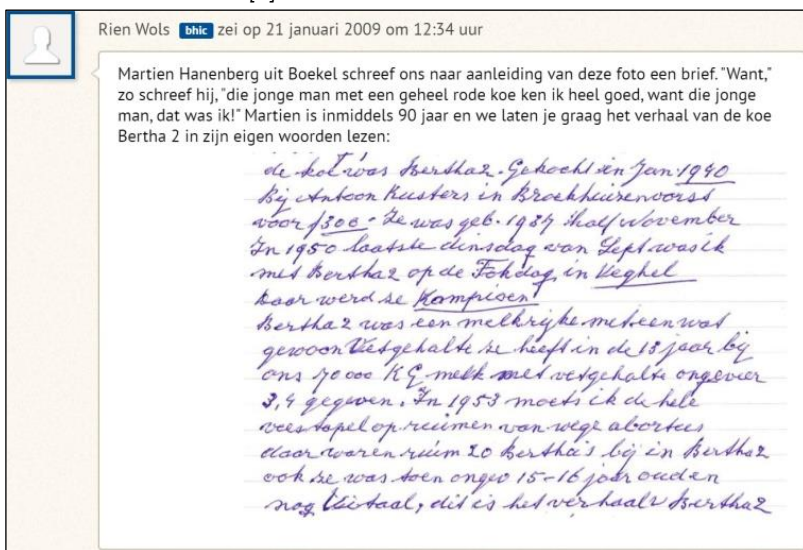 Rien Wols bhic zei op 21 januari 2009 om 12:34 uur
Martien Hanenberg uit Boekel schreef ons naar aanleiding van deze foto een brief. "Want,"
zo schreef hij, "die jonge man met een geheel rode koe ken ik heel goed, want die jonge
man, dat was ik!" Martien is inmiddels 90 jaar en we laten je graag het verhaal van de koe
Bertha 2 in zijn eigen woorden lezen:
de koe was Bertha 2. Gekocht in Jan 1940
Bij Antoon Kusters in Broekhuizenvorst
voor f300,- Ze was geb. 1937 half November
In 1950 laatste dinsdag van Sept was ik
met Bertha 2 op de Fokdag in Veghel
daar werd ze Kampioen
Bertha 2 was een melkrijke met een wat
gewoon Vetgehalte ze heeft in de 13 jaar bij
ons 70000 KG melk met vetgehalte ongeveer
3,4 gegeven. In 1953 moets ik de hele
veestapel opruimen van wege abortus
daar waren ruim 20 Bertha's bij in Bertha 2
ook ze was toen ongev 15-16 jaar oud en
nog Vitaal, dit is het verhaal v Bertha 2